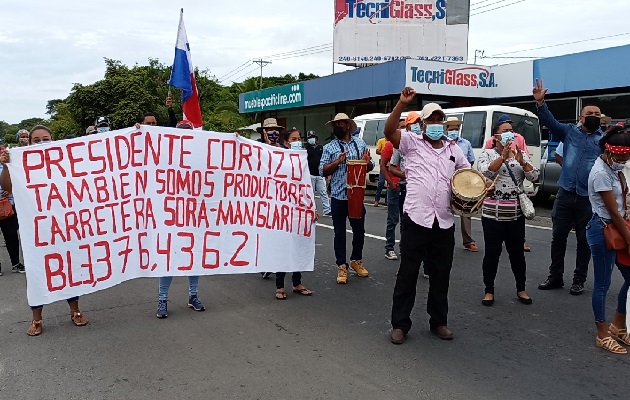 TECNIGLASS, S
240-8
221-7369
TECNIGLASS, S.A.
mueblepacificline.com
PRESIDENTE CORTIZO
TAMBIEN SOMOS PRODUCTORES
CARRETERA SORA-MANGLARITO
BL3,376,436.21